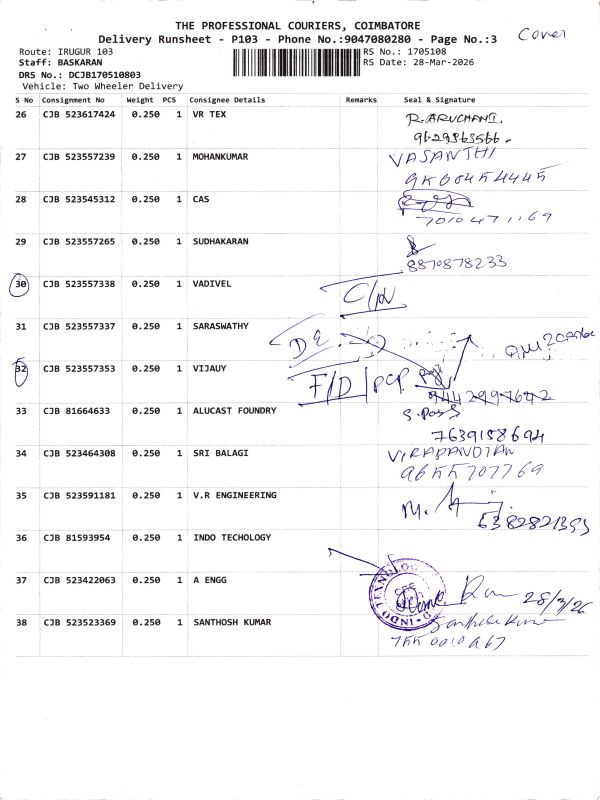 THE PROFESSIONAL COURIERS, COIMBATORE
Cover
Delivery Runsheet - P103 - Phone No.:9047080280 - Page No.:3
Route: IRUGUR 103
RS No.: 1705108
Staff: BASKARAN
RS Date: 28-Mar-2026
DRS No.: DCJB170510803
Vehicle: Two Wheeler Delivery
S No Consignment No Weight PCS Consignee Details Remarks Seal & Signature
26 CJB 523617424 0.250 1 VR TEX
27 CJB 523557239 0.250 1 MOHANKUMAR VASANTHI
28 CJB 523545312 0.250 1 CAS
7010471169
29 CJB 523557265 0.250 1 SUDHAKARAN
8870878233
30 CJB 523557338 0.250 1 VADIVEL
31 CJB 523557337 0.250 1 SARASWATHY
32 CJB 523557353 0.250 1 VIJAUY F/D
9442997642
33 CJB 81664633 0.250 1 ALUCAST FOUNDRY
7639158694
34 CJB 523464308 0.250 1 SRI BALAGI VIRAPANDIAN
9655707769
35 CJB 523591181 0.250 1 V.R ENGINEERING
6382821393
36 CJB 81593954 0.250 1 INDO TECHOLOGY
37 CJB 523422063 0.250 1 A ENGG
28/3/26
38 CJB 523523369 0.250 1 SANTHOSH KUMAR